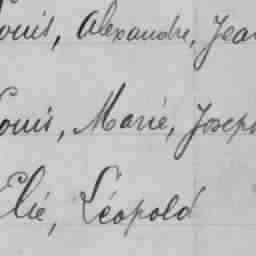 Louis, Alexandre, Jean
Louis, Marie, Joseph
Elie, Léopold